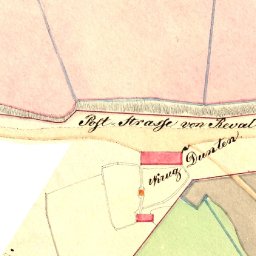 Post-Strasse von Reval
Krug Dunten